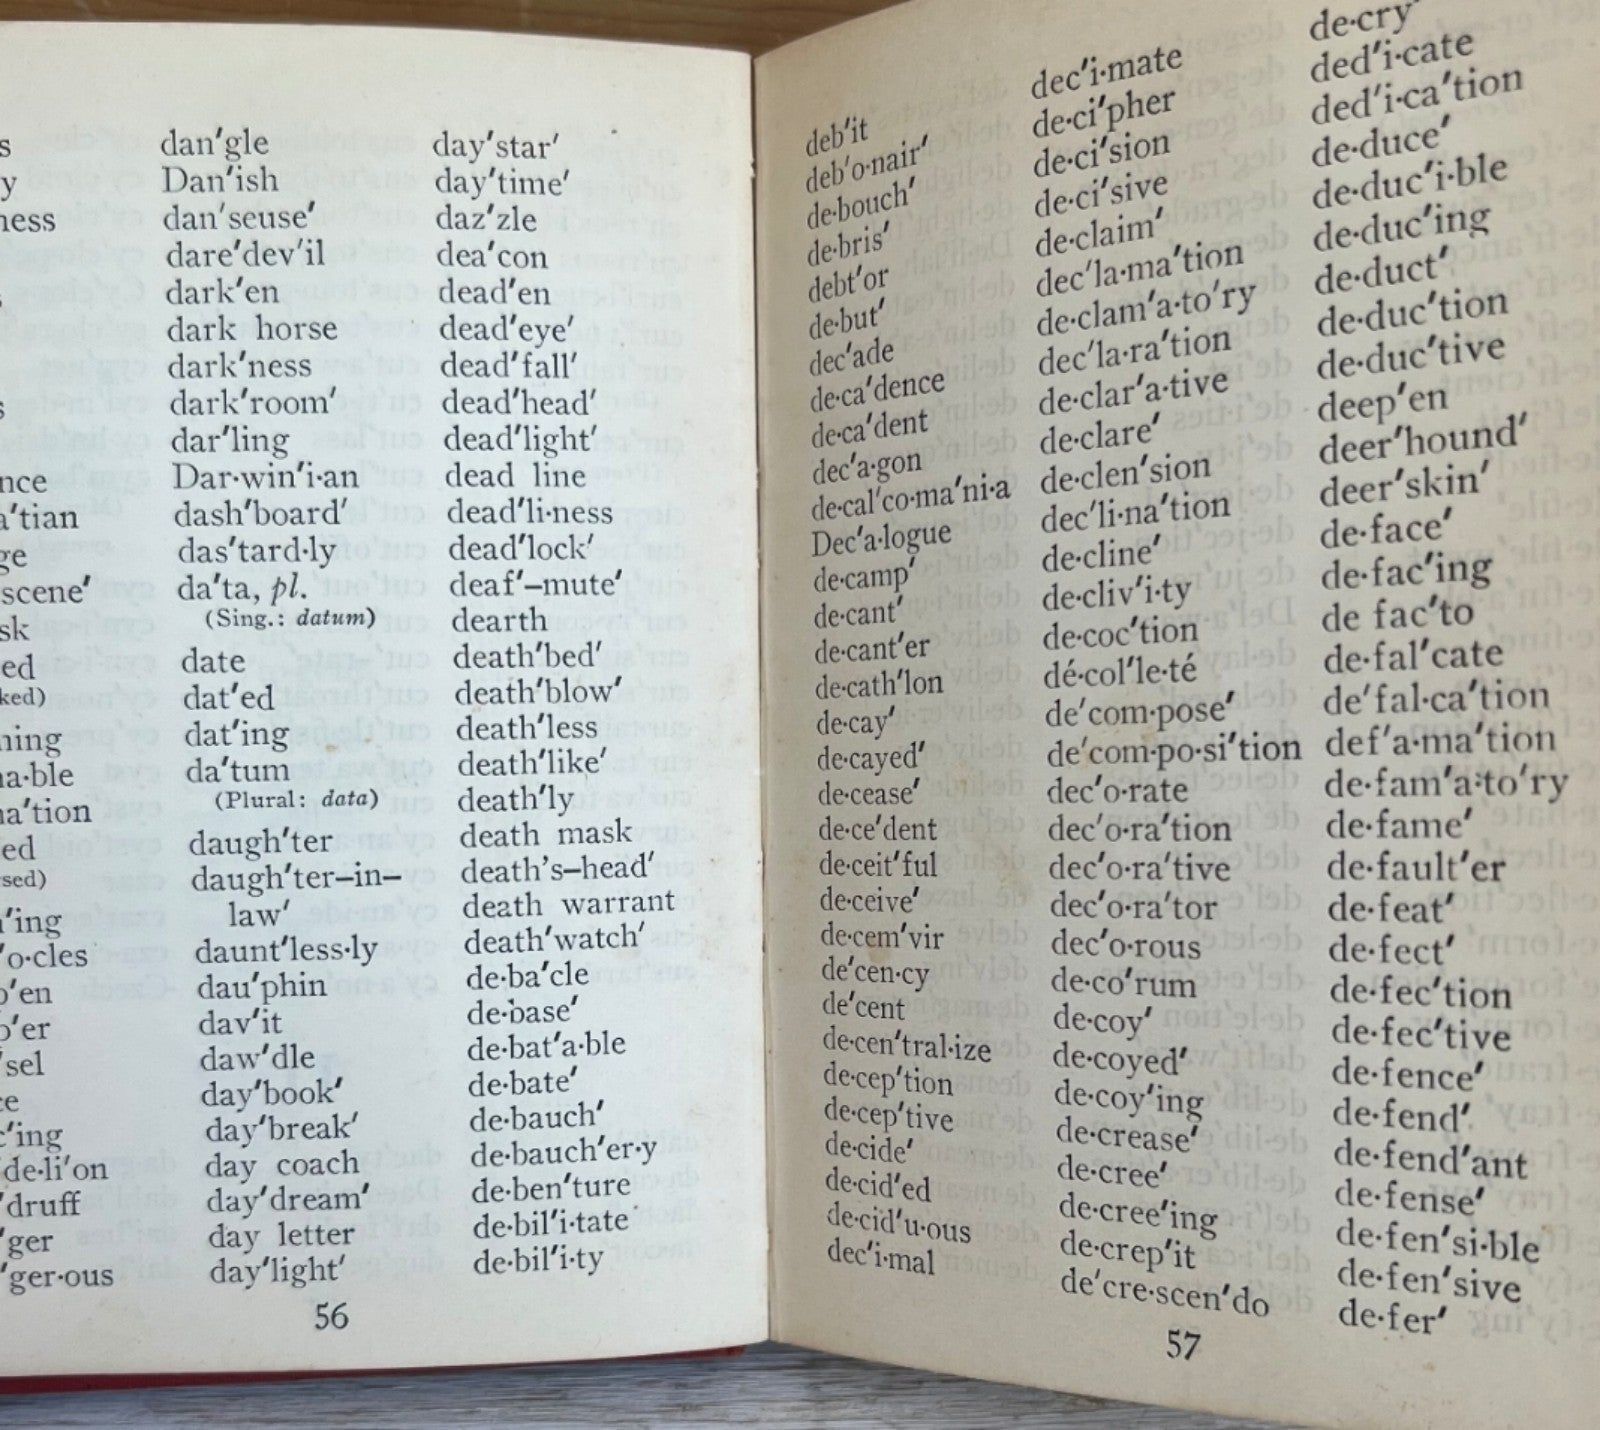 s
y
ness
s
s
nce
a′tian
ge
scene′
sk
ed
ked)
ning
na·ble
na′tion
ed
sed)
′ing
′o·cles
′en
′er
′sel
ce
′ing
de·li′on
′druff
′ger
′ger·ous
dan′gle
Dan′ish
dan′seuse′
dare′dev′il
dark′en
dark horse
dark′ness
dark′room′
dar′ling
Dar·win′i·an
dash′board′
das′tard·ly
da′ta, pl.
(Sing.: datum)
date
dat′ed
dat′ing
da′tum
(Plural: data)
daugh′ter
daugh′ter–in–
law′
daunt′less·ly
dau′phin
dav′it
daw′dle
day′book′
day′break′
day coach
day′dream′
day letter
day′light′
day′star′
day′time′
daz′zle
dea′con
dead′en
dead′eye′
dead′fall′
dead′head′
dead′light′
dead line
dead′li·ness
dead′lock′
deaf′–mute′
dearth
death′bed′
death′blow′
death′less
death′like′
death′ly
death mask
death's–head′
death warrant
death′watch′
de·ba′cle
de·base′
de·bat′a·ble
de·bate′
de·bauch′
de·bauch′er·y
de·ben′ture
de·bil′i·tate
de·bil′i·ty
56
deb′it
deb′o·nair′
de·bouch′
de·bris′
debt′or
de·but′
dec′ade
de·ca′dence
de·ca′dent
dec′a·gon
de·cal′co·ma′ni·a
Dec′a·logue
de·camp′
de·cant′
de·cant′er
de·cath′lon
de·cay′
de·cayed′
de·cease′
de·ce′dent
de·ceit′ful
de·ceive′
de·cem′vir
de′cen·cy
de′cent
de·cen′tral·ize
de·cep′tion
de·cep′tive
de·cide′
de·cid′ed
de·cid′u·ous
dec′i·mal
dec′i·mate
de·ci′pher
de·ci′sion
de·ci′sive
de·claim′
dec′la·ma′tion
de·clam′a·to′ry
dec′la·ra′tion
de·clar′a·tive
de·clare′
de·clen′sion
dec′li·na′tion
de·cline′
de·cliv′i·ty
de·coc′tion
dé·col′le·té
de′com·pose′
de′com·po·si′tion
dec′o·rate
dec′o·ra′tion
dec′o·ra′tive
dec′o·ra′tor
dec′o·rous
de·co′rum
de·coy′
de·coyed′
de·coy′ing
de·crease′
de·cree′
de·cree′ing
de·crep′it
de′cre·scen′do
de·cry′
ded′i·cate
ded′i·ca′tion
de·duce′
de·duc′i·ble
de·duc′ing
de·duct′
de·duc′tion
de·duc′tive
deep′en
deer′hound′
deer′skin′
de·face′
de·fac′ing
de fac′to
de·fal′cate
de′fal·ca′tion
def′a·ma′tion
de·fam′a·to′ry
de·fame′
de·fault′er
de·feat′
de·fect′
de·fec′tion
de·fec′tive
de·fence′
de·fend′
de·fend′ant
de·fense′
de·fen′si·ble
de·fen′sive
de·fer′
57